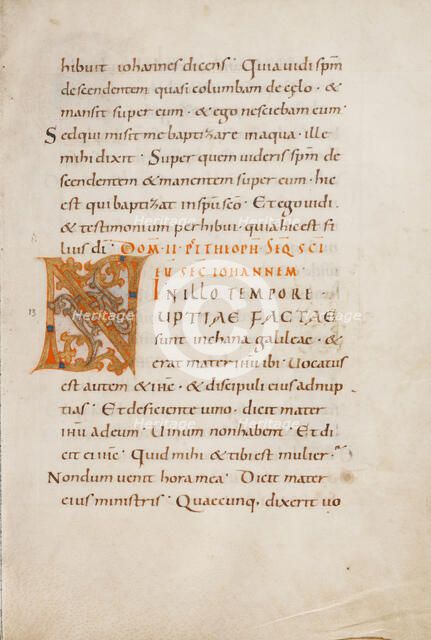 hibuit iohannes dicens · Quia uidi spm̄
descendentem quasi columbam de cęlo · &
mansit super eum · & ego nesciebam eum ·
Sed qui misit me baptizare in aqua · ille
mihi dixit · Super quem uideris spm̄ de
scendentem & manentem super eum · hic
est qui baptizat in spū sc̄o · Et ego uidi ·
& testimonium perhibui · quia hic est fi
lius dī · DOM · II · P̄ THEOPH · SEQ SC̄I
EŪ SEC IOHANNEM ·
IN ILLO TEMPORE
NUPTIAE FACTAE
sunt in chana galileae · &
erat mater ihū ibi · Uocatus
est autem & ihc̄ · & discipuli eius ad nup
tias · Et deficiente uino · dicit mater
ihū ad eum · Uinum non habent · Et di
cit ei ihc̄ · Quid mihi & tibi est mulier ·
Nondum uenit hora mea · Dicit mater
eius ministris · Quaecunq, dixerit uo
13
Heritage
Heritage
Heritage
Heritage
Heritage
Heritage